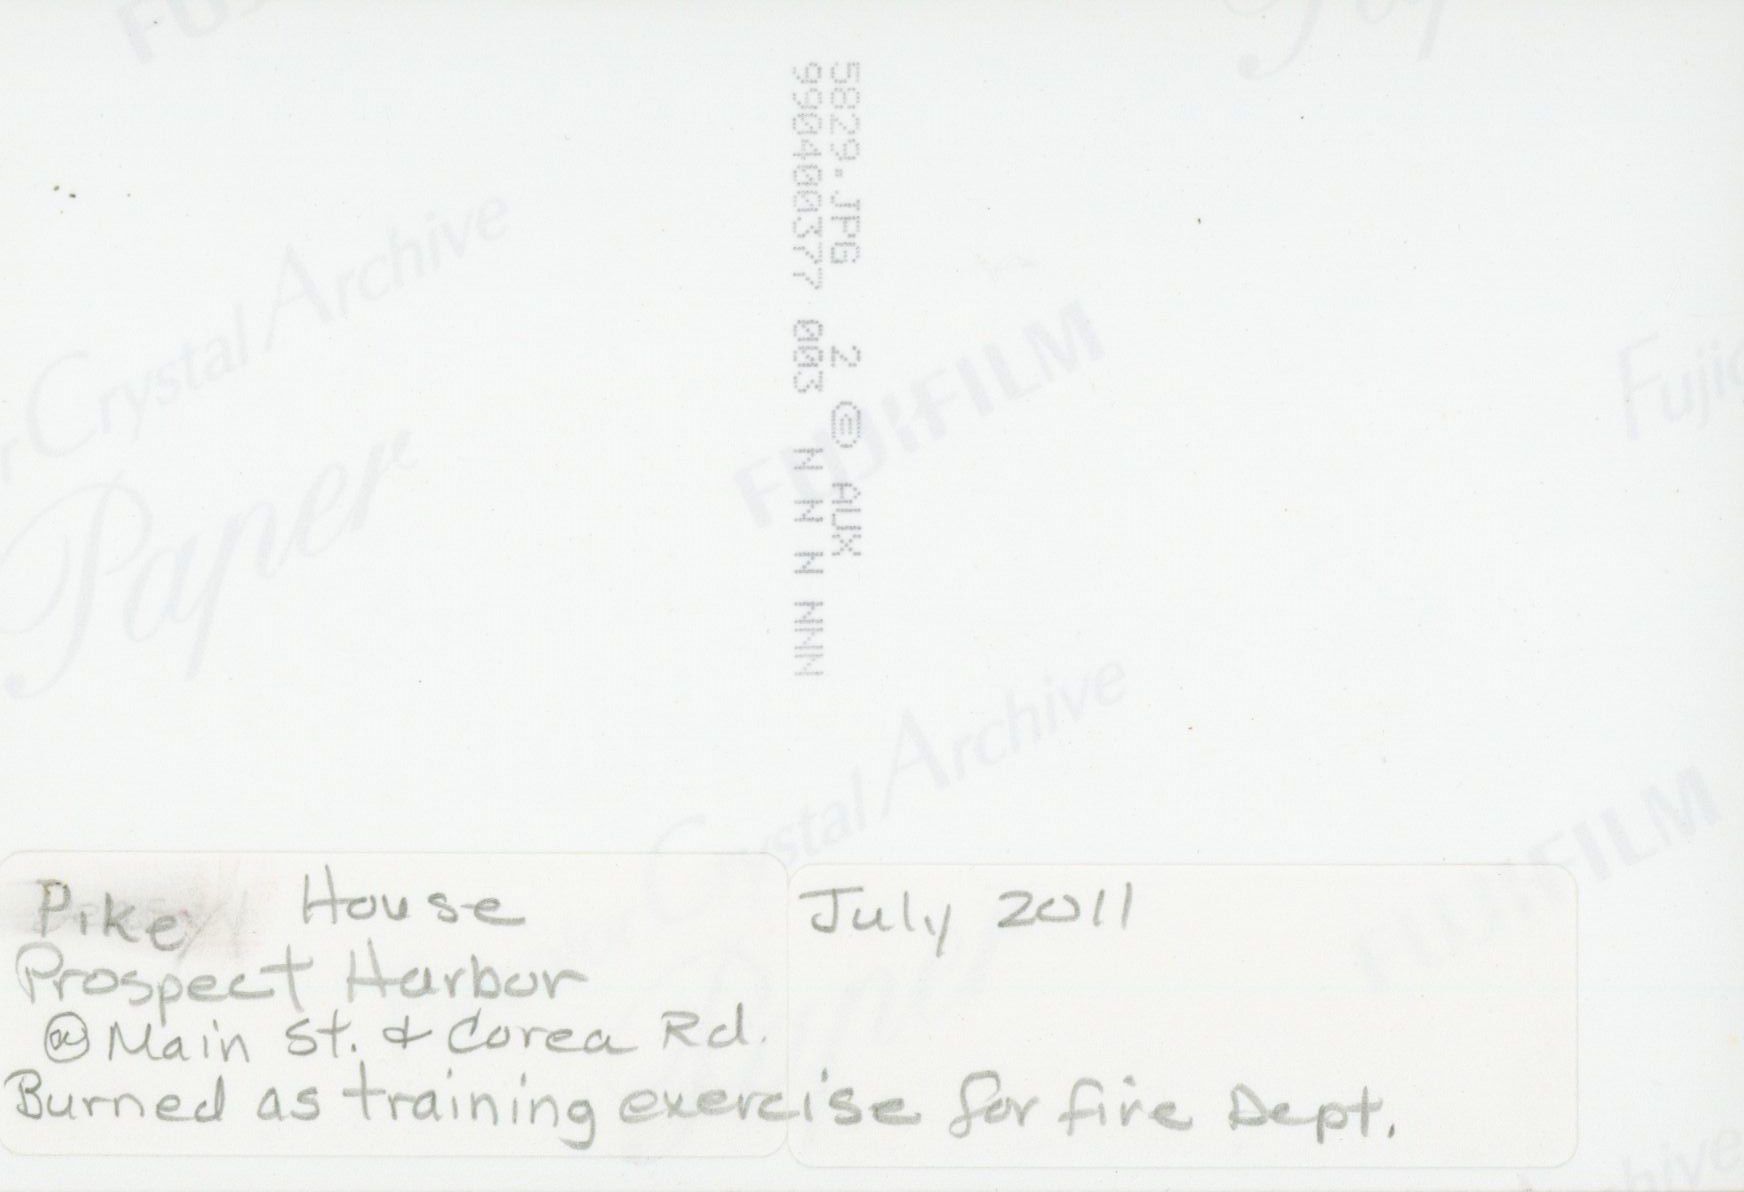 5829.JPG 2 © AUX
990400377 003 N N N NNN
Crystal Archive
Paper
FUJIFILM
Crystal Archive
FUJIFILM
Pike House July 2011
Prospect Harbor
@ Main St. & Corea Rd.
Burned as training exercise for fire Dept.